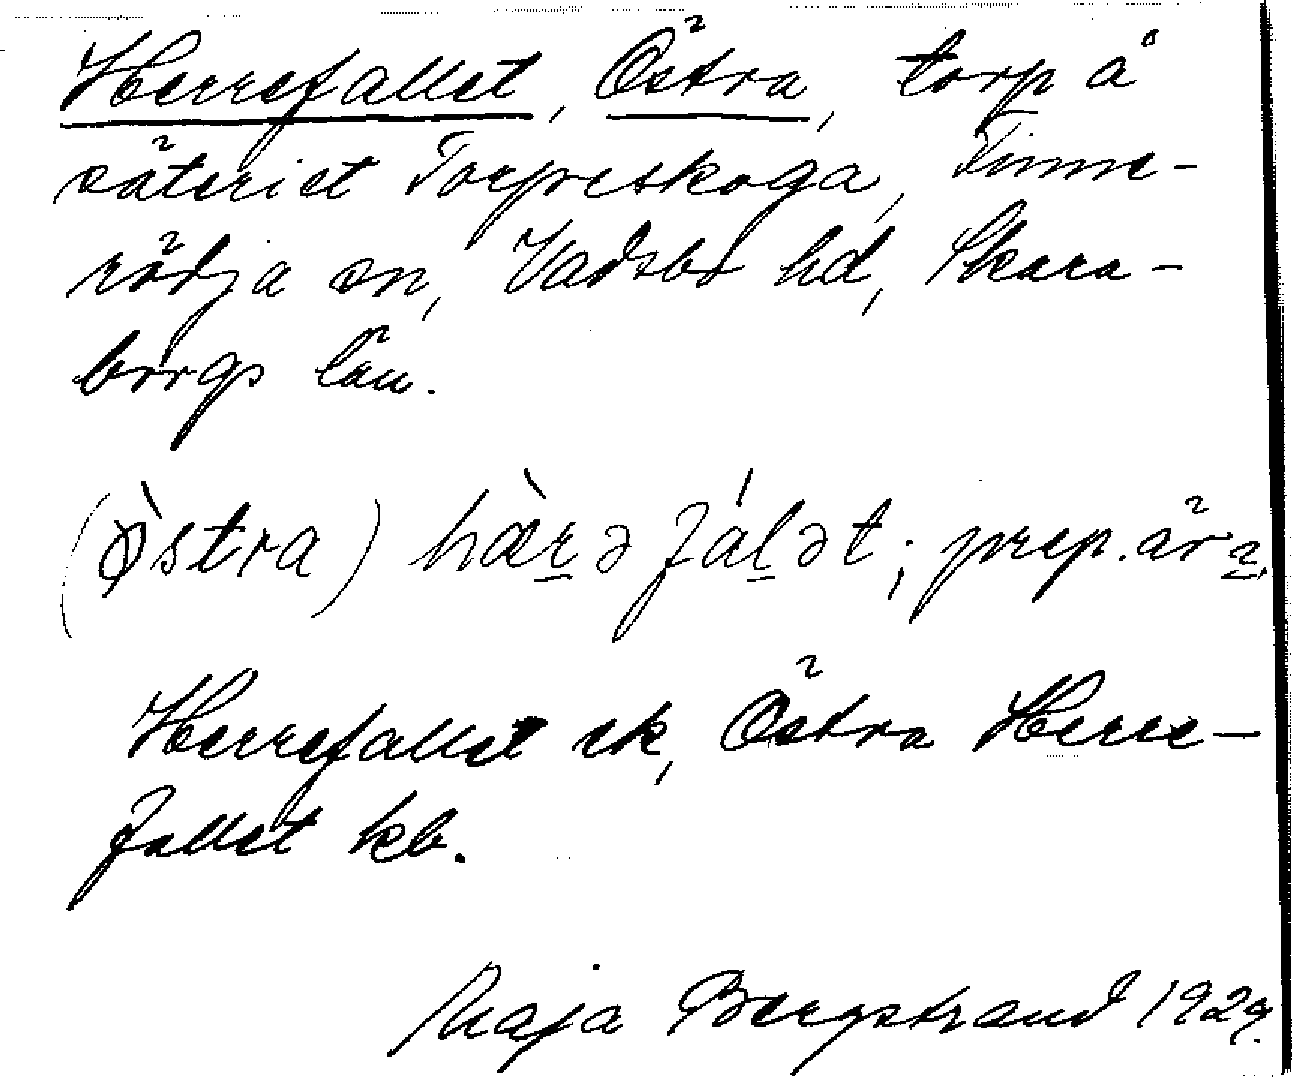 Herrefallet, Östra, torp å
säteriet Torpreskoga, Finne-
rödja sn, Vadsbo hd, Skara-
borgs län.
(ø̀stra) hæ̀r̲əfáḻət; prep. är a̲
Herrefallet ek, Östra Herre-
fallet kb.
Maja Bergstrand 1929.